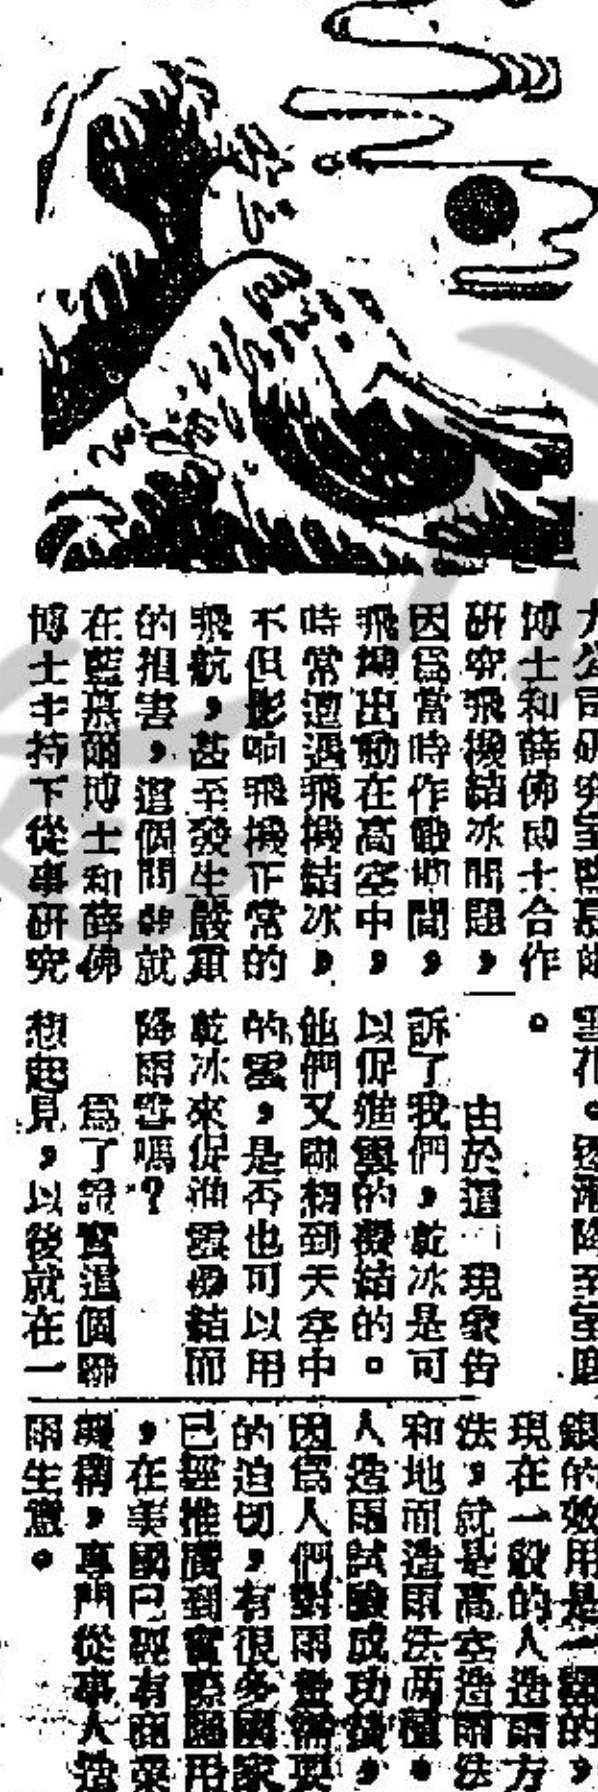 力公司研究室藍慕爾
博士和薛佛博士合作
研究飛機結冰問題，
因爲當時作戰期間，
飛機出動在高空中，
時常遭遇飛機結冰，
不但影响飛機正常的
飛航，甚至發生嚴重
的損害，這個問題就
在藍慕爾博士和薛佛
博士主持下從事研究
雪花。逐漸降至室底
。
由於這一現象告
訴了我們，乾冰是可
以促進雲的凝結的。
他們又聯想到天空中
的雲，是否也可以用
乾冰來促進雲份結而
降雨雪嗎？
爲了證實這個聯
想起見，以後就在一
銀的效用是一樣的，
現在一般的人造雨方
法，就是高空造雨法
和地面造雨法两種。
人造雨試驗成功後，
因爲人們對雨量需要
的迫切，有很多國家
已經推廣到實際應用
，在美國已經有商業
機構，專門從事人造
雨生意。